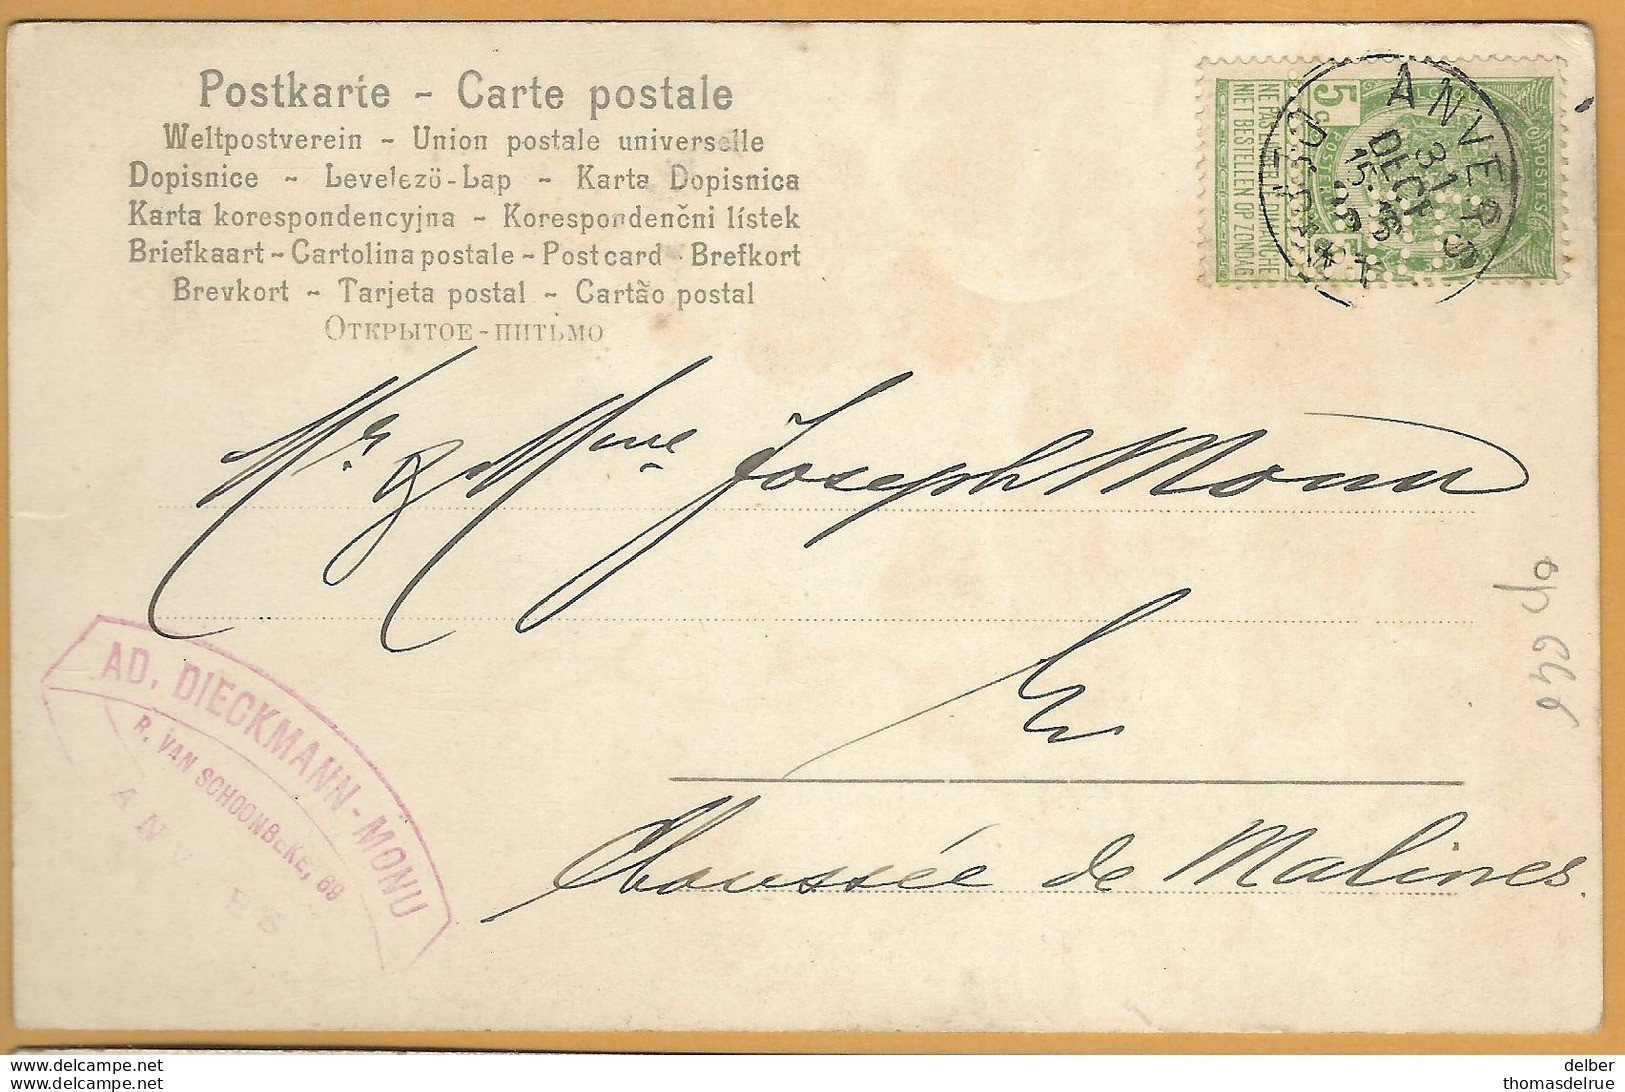 Postkarte - Carte postale
Weltpostverein - Union postale universelle
Dopisnice - Levelező-Lap - Karta Dopisnica
Karta korespondencyjna - Korespondenční lístek
Briefkaart - Cartolina postale - Postcard - Brefkort
Brevkort - Tarjeta postal - Cartão postal
Открытое-питьмо
ANVERS
31
DECE
15
5
POSTES
NIET BESTELLEN OP ZONDAG
Mr & Mme Joseph Monu
Ev
Chaussée de Malines.
AD. DIECKMANN-MONU
R. VAN SCHOONBEKE, 69
ANV RS
delber
delcampe.net
thomasdelrue
delcampe.net